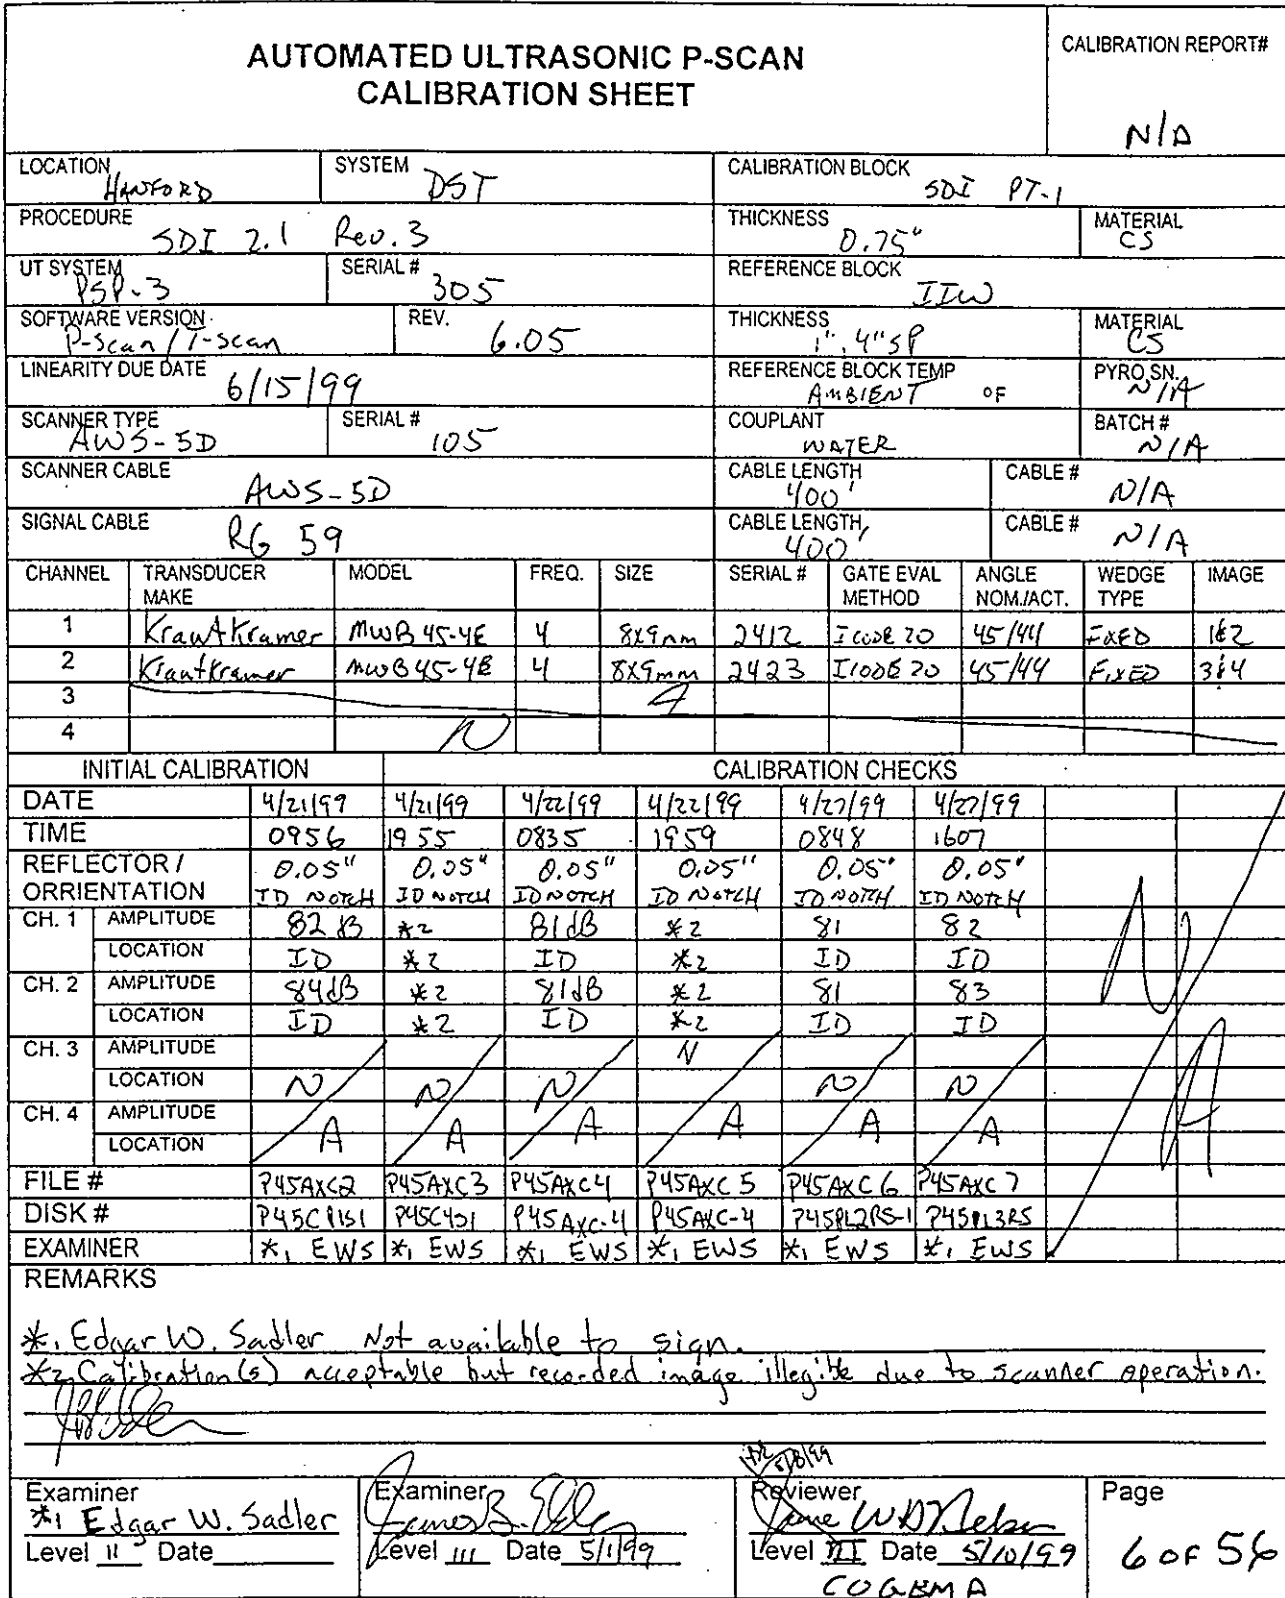 AUTOMATED ULTRASONIC P-SCAN
CALIBRATION SHEET
CALIBRATION REPORT#
N/A
LOCATION HANFORD
SYSTEM DST
CALIBRATION BLOCK SDI PT-1
PROCEDURE SDI 2.1 Rev. 3
THICKNESS 0.75"
MATERIAL CS
UT SYSTEM PSP-3
SERIAL # 305
REFERENCE BLOCK IIW
SOFTWARE VERSION P-scan / T-scan
REV. 6.05
THICKNESS 1", 4"SP
MATERIAL CS
LINEARITY DUE DATE 6/15/99
REFERENCE BLOCK TEMP AMBIENT OF
PYRO SN. N/A
SCANNER TYPE AWS-5D
SERIAL # 105
COUPLANT WATER
BATCH # N/A
SCANNER CABLE AWS-5D
CABLE LENGTH 400'
CABLE # N/A
SIGNAL CABLE RG 59
CABLE LENGTH 400'
CABLE # N/A
CHANNEL TRANSDUCER MAKE MODEL FREQ. SIZE SERIAL # GATE EVAL METHOD ANGLE NOM./ACT. WEDGE TYPE IMAGE
1 KrautKramer MWB 45-4E 4 8x9mm 2412 ICODE 20 45/44 FIXED 1&2
2 Krautkramer MWB 45-4E 4 8x9mm 2423 ICODE 20 45/44 FIXED 3&4
3
4 N A
INITIAL CALIBRATION CALIBRATION CHECKS
DATE 4/21/99 4/21/99 4/22/99 4/22/99 4/27/99 4/27/99
TIME 0956 1955 0835 1959 0848 1607
REFLECTOR / 0.05" 0.05" 0.05" 0.05" 0.05" 0.05"
ORRIENTATION ID NOTCH ID NOTCH ID NOTCH ID NOTCH ID NOTCH ID NOTCH
CH. 1 AMPLITUDE 82 dB *2 81dB *2 81 82
LOCATION ID *2 ID *2 ID ID
CH. 2 AMPLITUDE 84dB *2 81dB *2 81 83
LOCATION ID *2 ID *2 ID ID
CH. 3 AMPLITUDE N
LOCATION N N N N N
CH. 4 AMPLITUDE A A A A A A
LOCATION
N A
FILE # P45AXC2 P45AXC3 P45AXC4 P45AXC5 P45AXC6 P45AXC7
DISK # P45CP1S1 P45C4S1 P45AXC-4 P45AXC-4 P45PL2RS-1 P45PL3RS
EXAMINER *1 EWS *1 EWS *1 EWS *1 EWS *1 EWS *1 EWS
REMARKS
*1 Edgar W. Sadler Not available to sign.
*2 Calibration(s) acceptable but recorded image illegible due to scanner operation.
Examiner
*1 Edgar W. Sadler
Level II Date
Examiner
James B. Elder
Level III Date 5/1/99
Reviewer
Level III Date 5/10/99
COGEMA
Page
6 OF 56